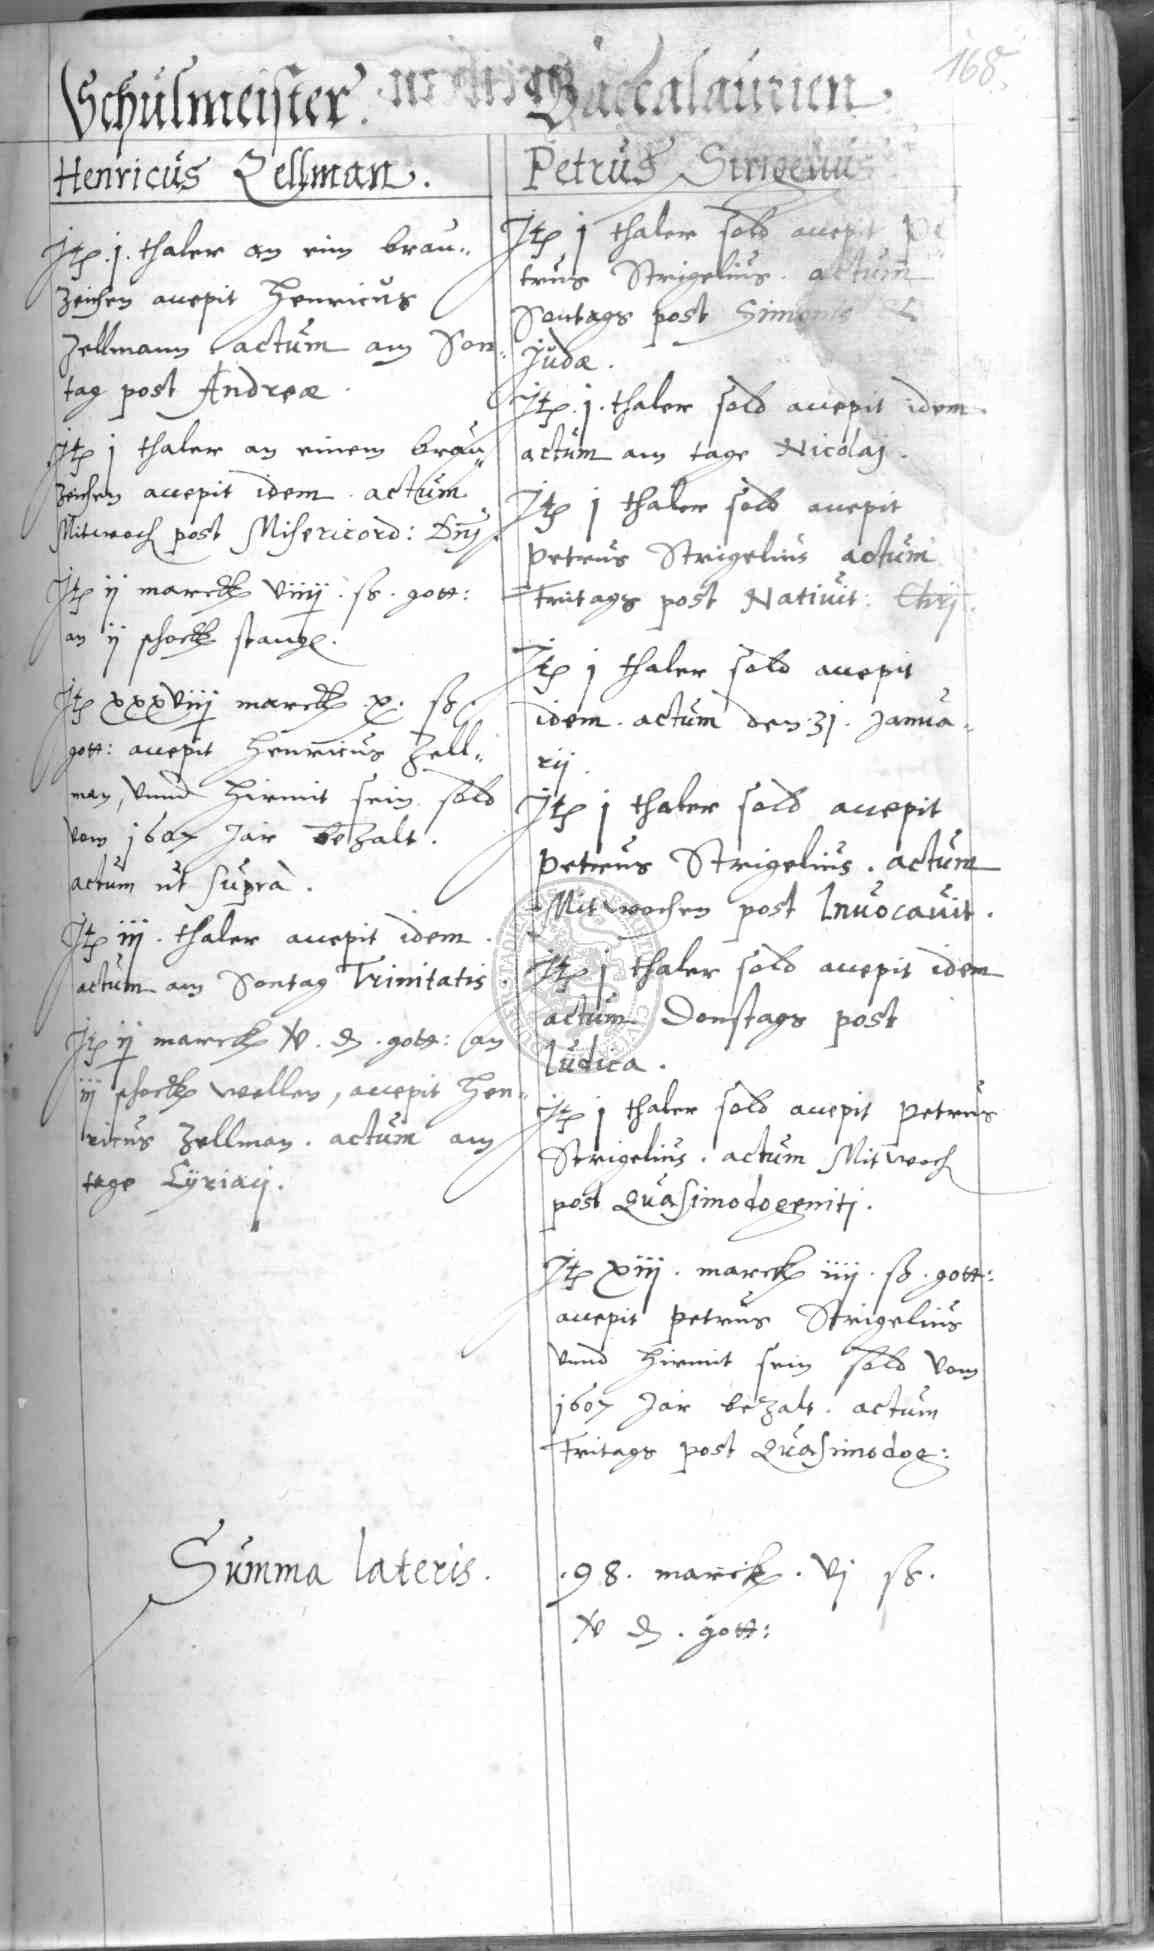 168.
Schulmeister.
Henricus Zellman.
Jtē .j. thaler an eim brau-
zeichen accepit Henricus
Zellmann actum am Son-
tag post Andreæ.
Jtē j thaler an einem brau
zeichen accepit idem. actum
Mitwoch post Misericord: Dnj.
Jtē ij marck viiij. ß. gott:
an ij schock stangē.
Jtē xxxviij marck .x. ß.
gott: accepit Henricus Zell-
man, vnnd hiermit sein sold
vom 1607 Jar bezalt.
actum ut supra.
Jtē iij. thaler accepit idem.
actum am Sontag Trinitatis.
Jtē ij marck xv. d. gott: an
iij schock wellen, accepit Hen-
ricus Zellman. actum am
tage Cÿriacj.
Baccalaurien.
Petrus Strigelius
Jtē j thaler sold accepit Pe
trus Strigelius. actum
Sontags post Simonis &
Judæ.
Jtē .j. thaler sold accepit idem.
actum am tage Nicolaj.
Jtē j thaler sold accepit
Petrus Strigelius actum
Fritags post Natiuit: Chrj.
Jtē j thaler sold accepit
idem. actum den 31. Janua-
rij.
Jtē j thaler sold accepit
Petrus Strigelius. actum
Mitwochen post Inuocauit.
Jtē j thaler sold accepit idem
actum Donstags post
Iudica.
Jtē j thaler sold accepit Petrus
Strigelius. actum Mitwoch
post Quasimodogenitj.
Jtē xiij. marck iiij. ß. gott:
accepit Petrus Strigelius
vnnd hiermit sein sold vom
1607 Jar bezalt. actum
Fritags post Quasimodog:
Summa lateris. .98. marck. vj ß.
xv d. gott: